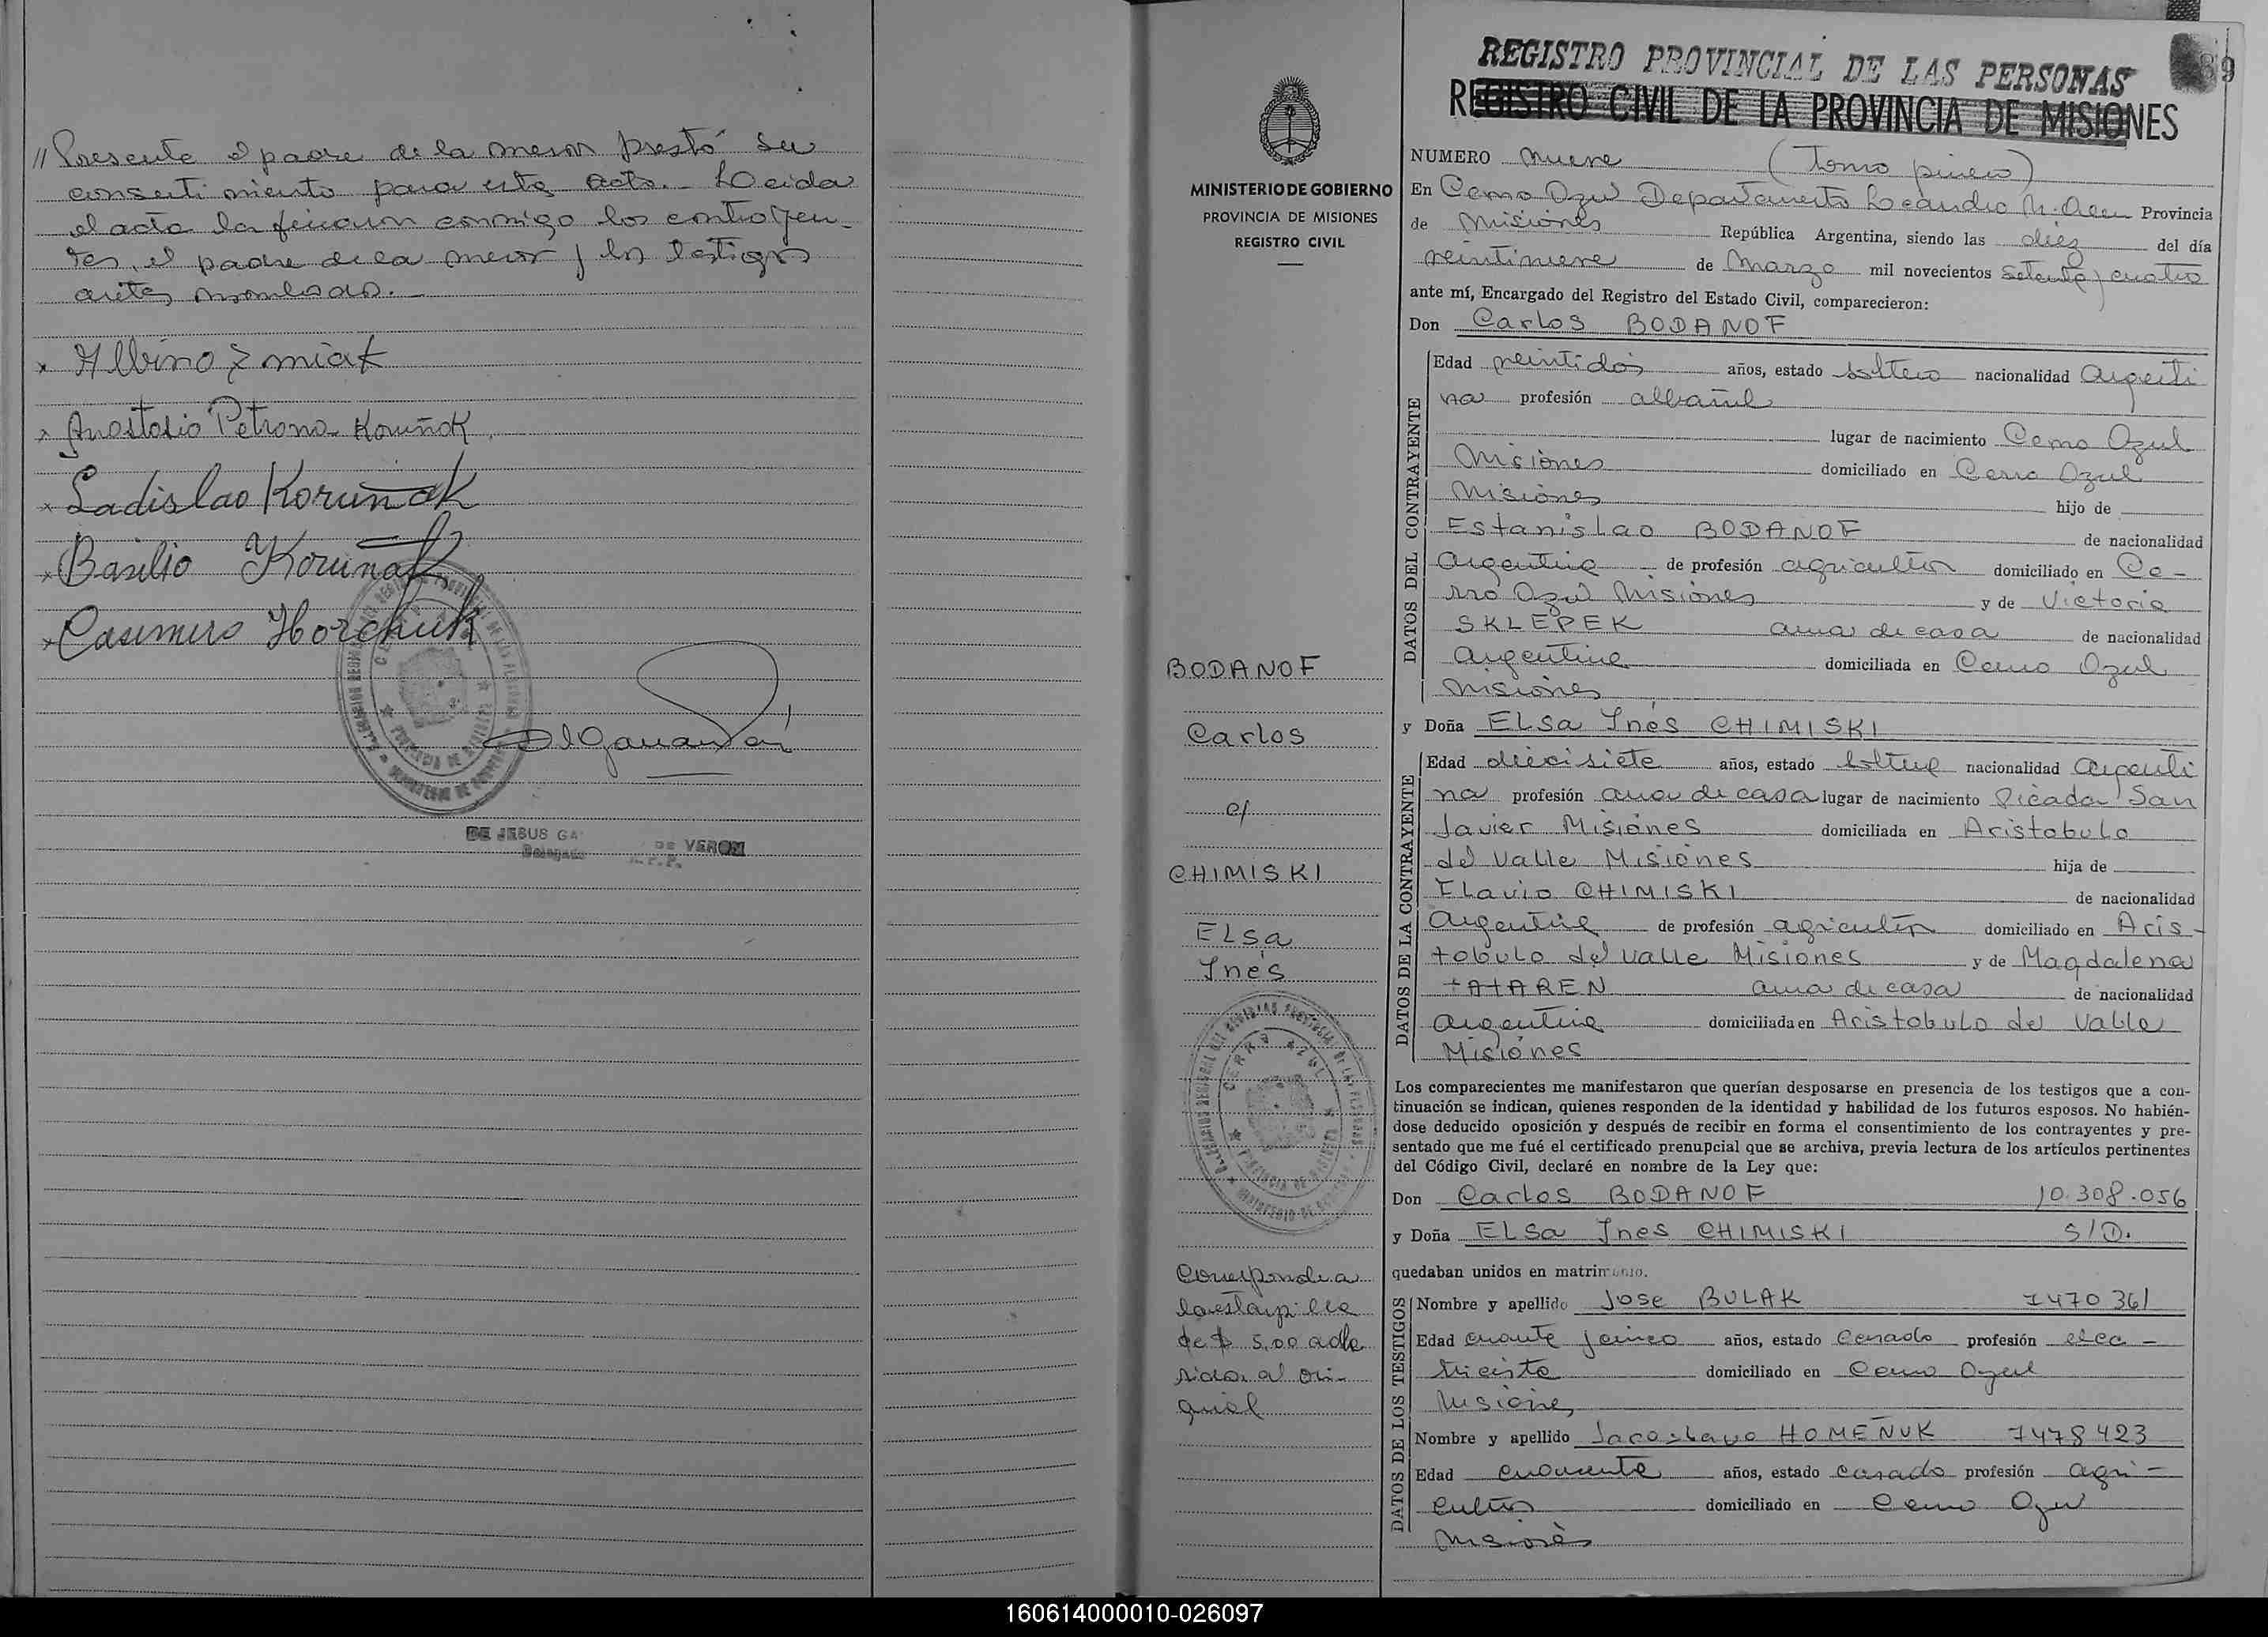 // Presente el padre de la menor prestó su
consentimiento para este acto.- Leida
el acta la firmaron conmigo los contrayen-
tes, el padre de la menor y los testigos
antes nombrados.-
x Albino Zmiak
x Anastasia Petrona Koruñak
x Ladislao Koruñak
x Basilio Koruñak
x Casimiro Horchuk
DE JESUS GA
DE VERON
Delegada
R.P.P.
MINISTERIO DE GOBIERNO
PROVINCIA DE MISIONES
REGISTRO CIVIL
BODANOF
Carlos
c/
CHIMISKI
ELSa
Inés
CERRO AZUL
Corresponde a
la estampilla
de $ 5,00 adhe
rida al ori-
ginal
REGISTRO PROVINCIAL DE LAS PERSONAS
89
REGISTRO CIVIL DE LA PROVINCIA DE MISIONES
NUMERO nueve (Tomo primero)
En Cerro Azul Departamento Leandro N. Alem Provincia
de Misiones República Argentina, siendo las diez del día
veintinueve de Marzo mil novecientos setenta y cuatro
ante mí, Encargado del Registro del Estado Civil, comparecieron:
Don Carlos BODANOF
DATOS DEL CONTRAYENTE
Edad veintidós años, estado soltero nacionalidad argenti
na profesión albañil
lugar de nacimiento Cerro Azul
Misiones domiciliado en Cerro Azul
Misiones hijo de
Estanislao BODANOF de nacionalidad
Argentina de profesión agricultor domiciliado en Ce-
rro Azul Misiones y de Victoria
SKLEPEK ama de casa de nacionalidad
argentina domiciliada en Cerro Azul
Misiones
y Doña ELSa Inés CHIMISKI
DATOS DE LA CONTRAYENTE
Edad diecisiete años, estado soltera nacionalidad argenti
na profesión ama de casa lugar de nacimiento Picada San
Javier Misiones domiciliada en Aristobulo
del Valle Misiones hija de
Flavio CHIMISKI de nacionalidad
argentina de profesión agricultor domiciliado en Aris-
tobulo del Valle Misiones y de Magdalena
tAtAREN ama de casa de nacionalidad
argentina domiciliada en Aristobulo del Valle
Misiones
Los comparecientes me manifestaron que querían desposarse en presencia de los testigos que a con-
tinuación se indican, quienes responden de la identidad y habilidad de los futuros esposos. No habién-
dose deducido oposición y después de recibir en forma el consentimiento de los contrayentes y pre-
sentado que me fué el certificado prenupcial que se archiva, previa lectura de los artículos pertinentes
del Código Civil, declaré en nombre de la Ley que:
Don Carlos BODANOF 10.308.056
y Doña ELSa Ines CHIMISKI S/D.
quedaban unidos en matrimonio.
DATOS DE LOS TESTIGOS
Nombre y apellido Jose BULAK 7470361
Edad cuarenta y cinco años, estado casado profesión elec-
tricista domiciliado en Cerro Azul
Misiones
Nombre y apellido Jaroslavo HOMEÑUK 7478423
Edad cuarenta años, estado casado profesión agri-
cultor domiciliado en Cerro Azul
Misiones
160614000010-026097